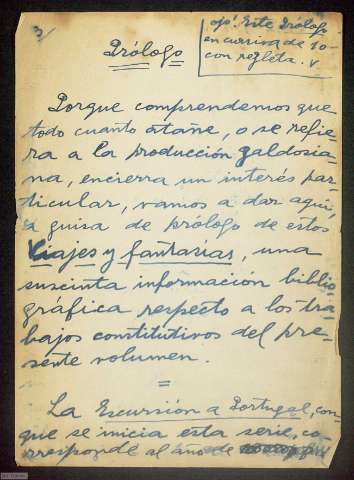 3/
ojo! Este Prólogo
en cursiva de 10
con regleta.
Prólogo
Porque comprendemos que
todo cuanto atañe, o se refie-
ra a la producción galdosia-
na, encierra un interés par-
ticular, vamos a dar aquí,
a guisa de prólogo de estos
Viajes y fantasías, una
suscinta información biblio-
gráfica respecto a los tra-
bajos constitutivos del pre-
sente volumen.
=
La Escursión a Portugal, con
que se inicia esta serie, co-
rresponde al año de